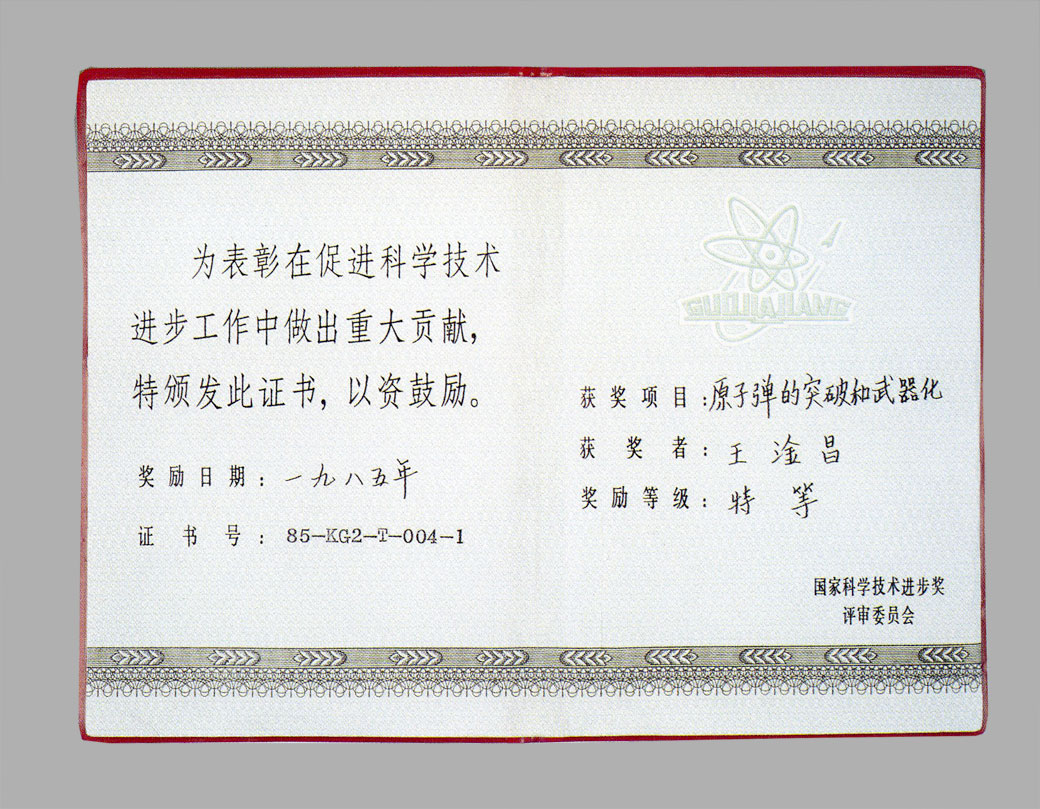 为表彰在促进科学技术
进步工作中做出重大贡献，
特颁发此证书，以资鼓励。
奖励日期：一九八五年
证书号：85-KG2-T-004-1
GUOJIAJIANG
获奖项目：原子弹的突破和武器化
获奖者：王淦昌
奖励等级：特等
国家科学技术进步奖
评审委员会